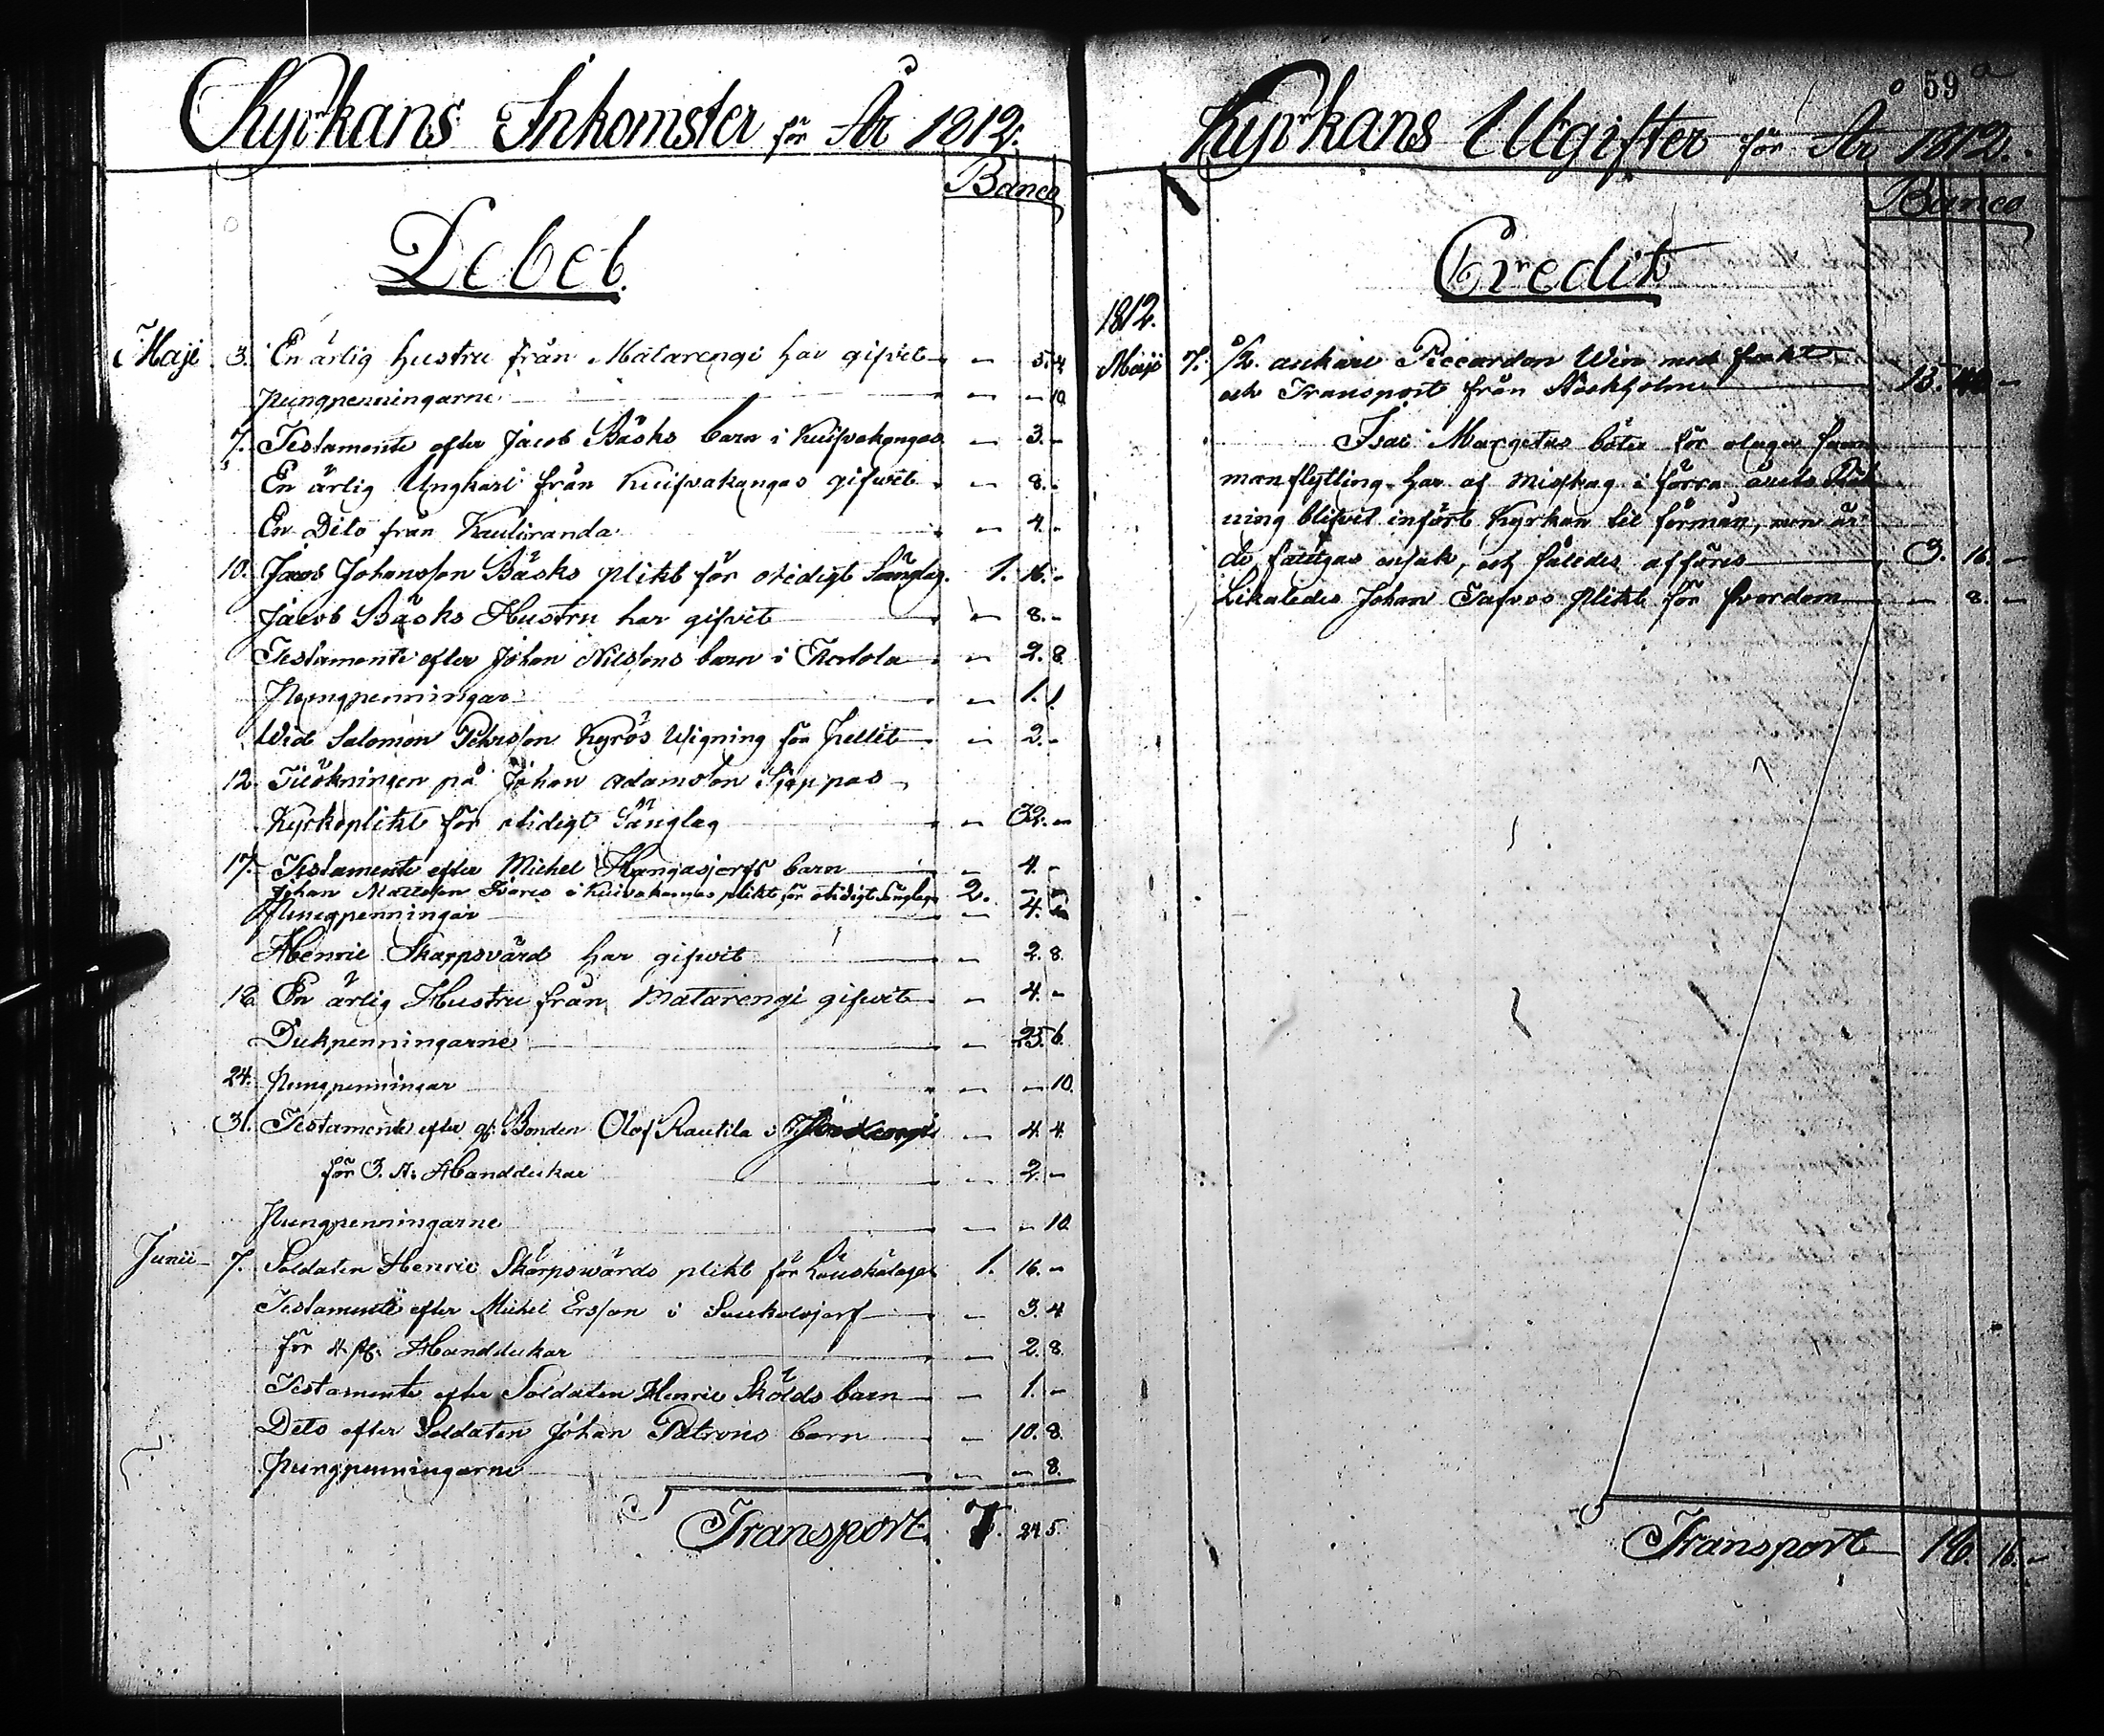 Kyrkans Inkomster för År 1812.
Banco
Debet.
Maji 3. En ärlig hustru från Matarengi har gifvit — 5. 4
Pungpenningarne — — 10
7. Testamente efter Jacob Bäcks barn i Kuifvakangas — 3. —
En ärlig Ungkarl från Kuifvakangas gifvit — 8. —
En Dito från Kauliranda — 4. —
10. Jacob Johansson Bäcks plikt för otidigt Sänglag. 1. 16. —
Jacob Bäcks Hustru har gifvit — 8. —
Testamente efter Johan Nilssons barn i — 2. 8
Pungpenningar — 1. 1.
Wid Salomon Pehrsson Kyrös Wigning för pellet — 2. —
12. på Johan Adamsson
Kyrkoplikt för otidigt Sänglag — 32. —
17. Testamente efter Michel Hangasjerfs barn — 4. —
Johan Mattsson i Kuivakangas plikt för otidigt Sänglag 2. — —
Pungpenningar — 4.
Henric Skarpsvärd har gifvit — 2. 8.
18. En ärlig Hustru från Matarengi gifvit — 4. —
Dukpenningarne — 25. 6.
24. Pungpenningar — — 10.
31. Testamente efter Bonden Olof Rautila i — 4. 4.
för 3. st. Handdukar — 2. —
Pungpenningarne — — 10.
Junii 7. Soldaten Henric Skarpswärds plikt för Löuskalaget 1. 16. —
Testamente efter Michel Ersson i — 3. 4
för Handdukar — 2. 8.
Testamente efter Soldaten Henric Skölds barn — 1. —
Dito efter Soldaten Johan Patrons barn — 10. 8.
Pungpenningarne — — 8.
Transport. 7. 24. 5.
59 a
Kyrkans Utgifter för År 1812.
Banco
Credit
1812.
Maji 7. 1/2. ankare Piccardon Win med frakt
och Transport från Stockholm 15.
Isac bötes för olaga
manflyttning har af misstag i förra årets Räk
ning blifvit infört Kyrkan til förmån, men är
de fattigas ensak, och således afföres 3. 16. —
Likaledes Johan plikt för — 8. —
Transport 16. —